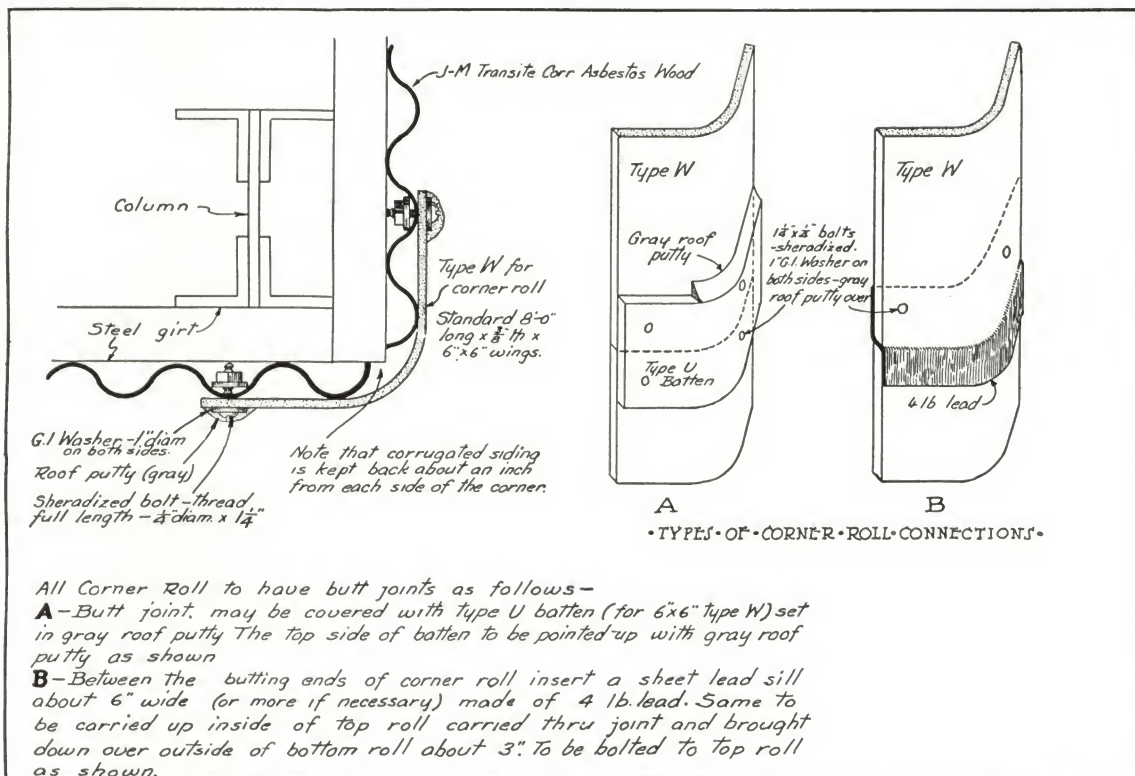 J-M Transite Corr Asbestos Wood
Column
Type W for
corner roll
Standard 8'-0"
long x 3/8" th x
6"x6" wings.
Steel girt
G.I Washer-1"diam
on both sides.
Roof putty (gray)
Sheradized bolt-thread,
full length - 1/4" diam. x 1 1/4"
Note that corrugated siding
is kept back about an inch
from each side of the corner.
Type W
Gray roof
putty
Type U
Batten
A
1 1/4"x 1/4" bolts
-sheradized.
1"G.I. Washer on
both sides-gray
roof putty over
Type W
4 lb lead
B
•TYPES•OF•CORNER•ROLL•CONNECTIONS•
All Corner Roll to have butt joints as follows-
A-Butt joint, may be covered with Type U batten (for 6"x6" Type W) set
in gray roof putty The top side of batten to be pointed-up with gray roof
putty as shown
B-Between the butting ends of corner roll insert a sheet lead sill
about 6" wide (or more if necessary) made of 4 lb. lead. Same to
be carried up inside of top roll carried thru joint and brought
down over outside of bottom roll about 3". To be bolted to top roll
as shown.